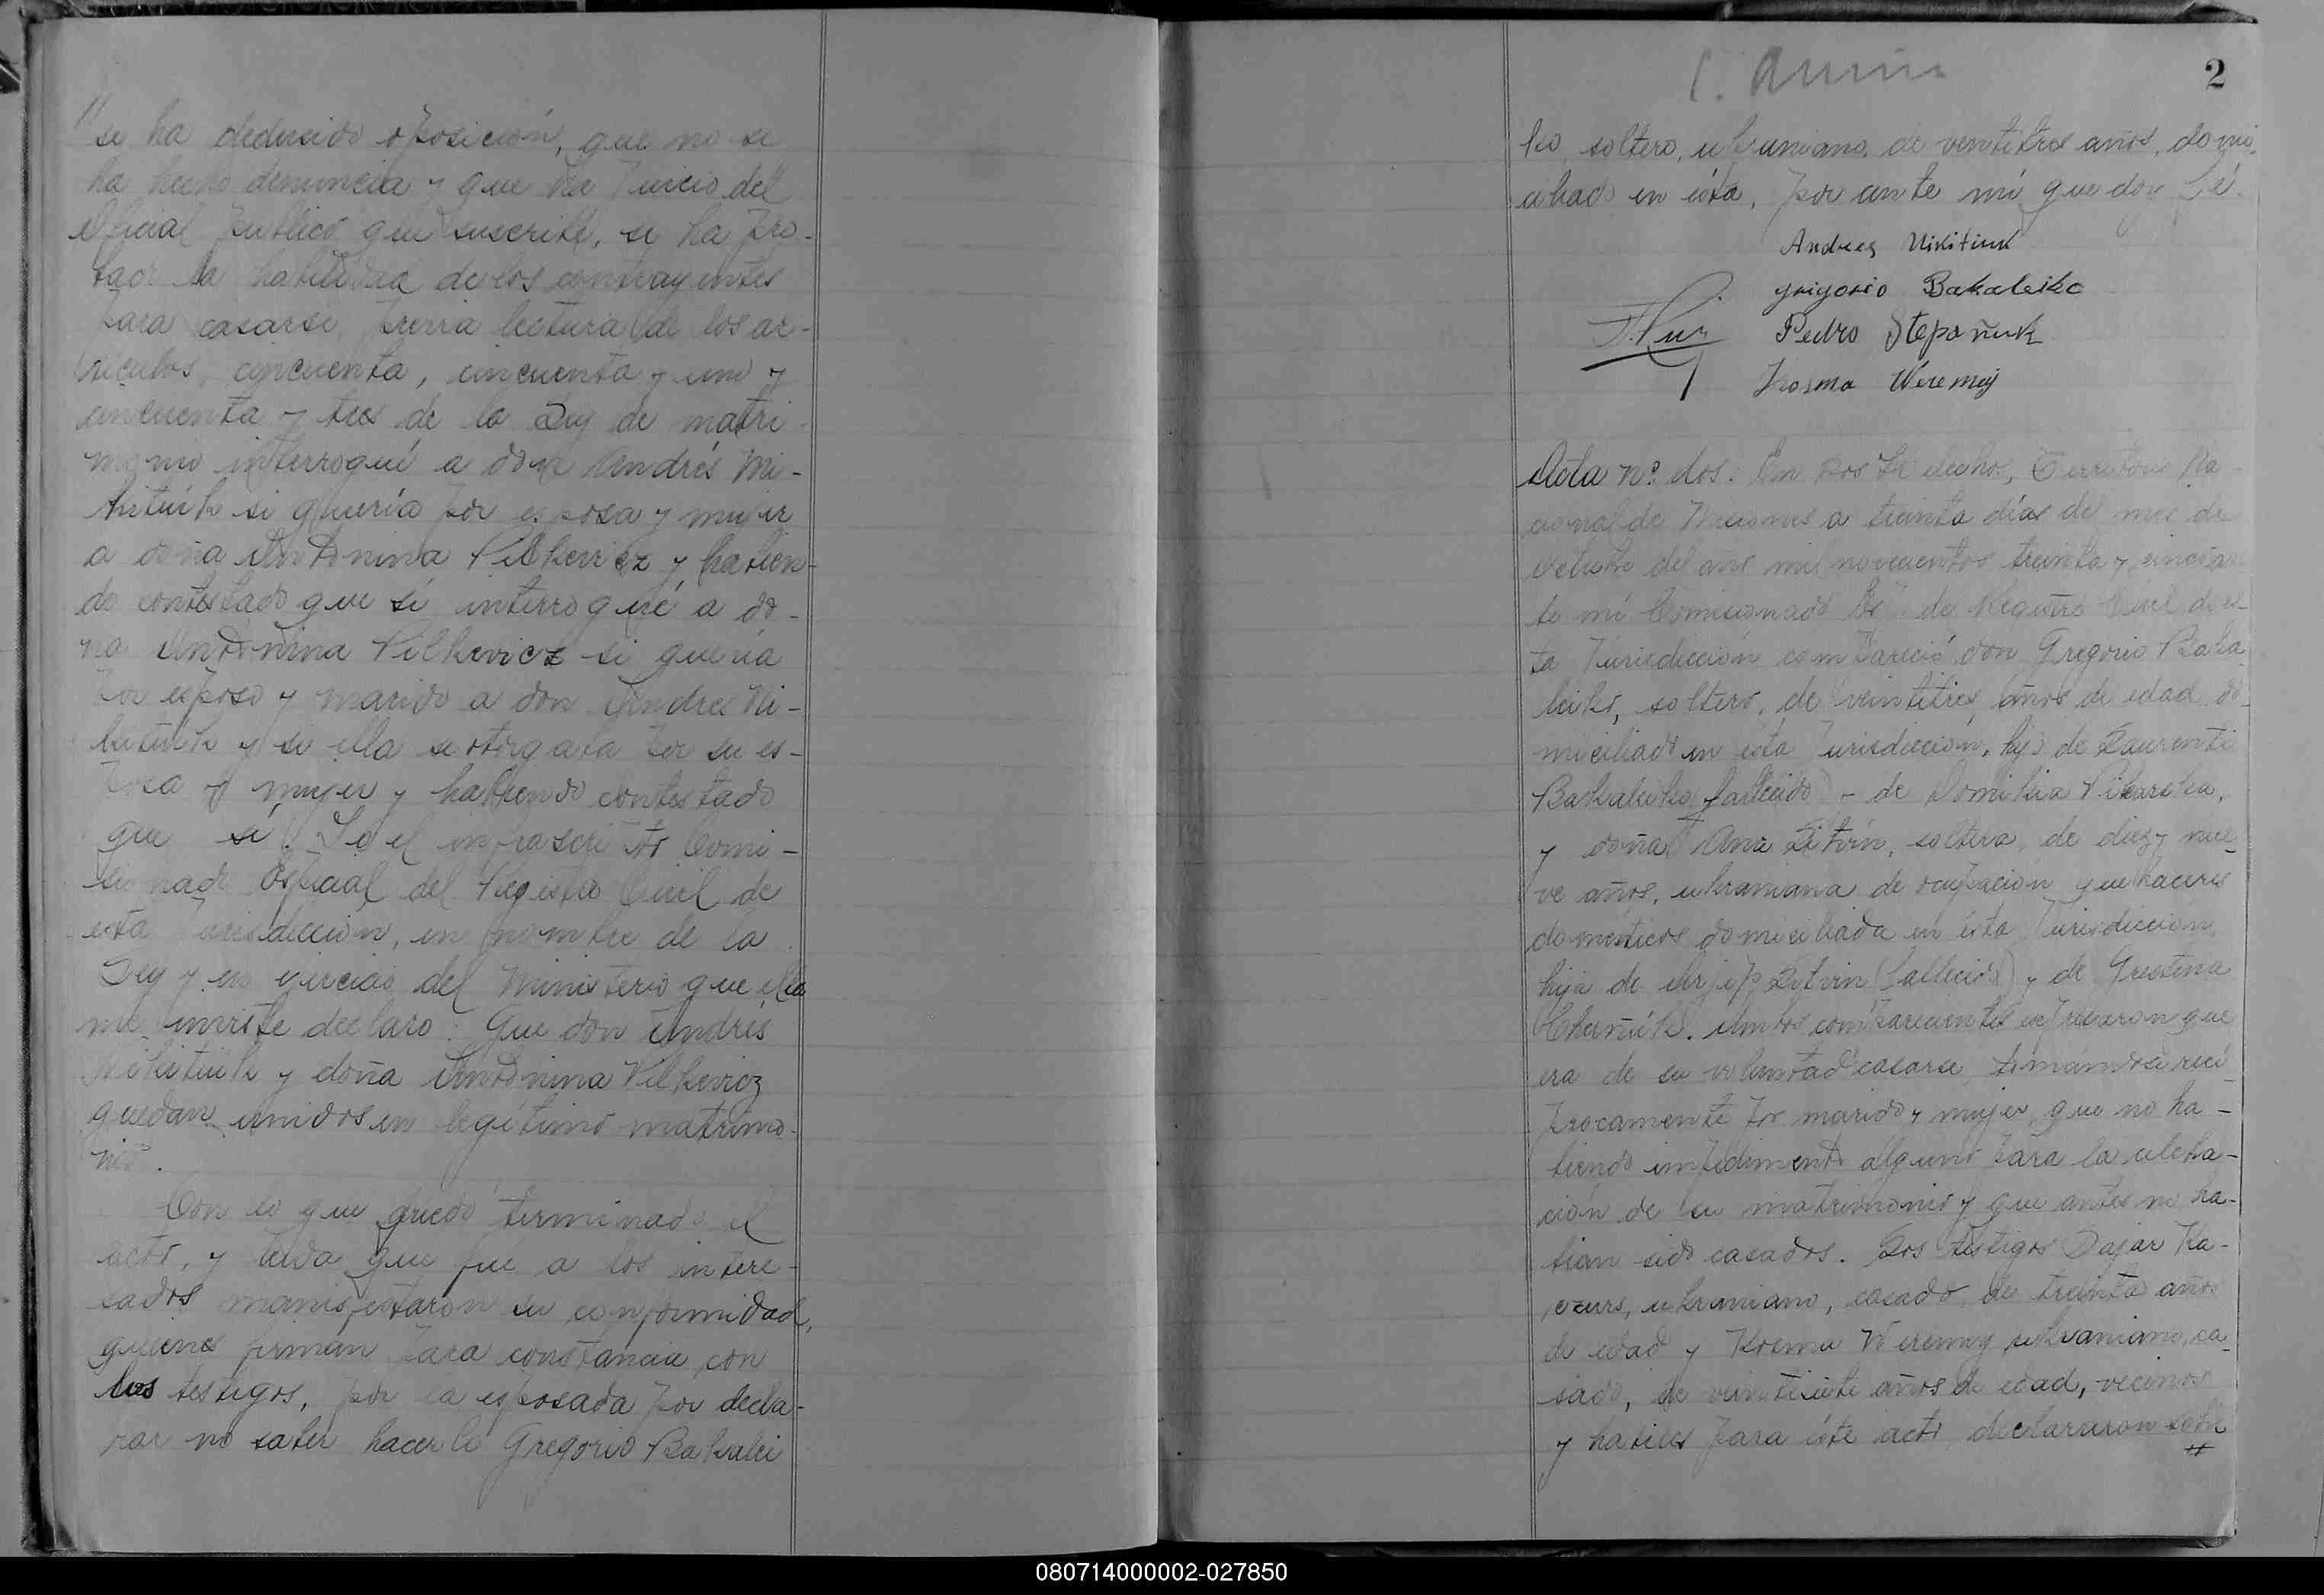 //
se ha deducido oposición, que no se
ha hecho denuncia y que ha Juicio del
Oficial Publico que suscribe, se ha pro-
bado la habilidad de los contrayentes
para casarse, previa lectura de los ar-
tículos, cincuenta, cincuenta y uno y
cincuenta y tres de la Ley de matri-
monio interroqué a don Andrés Ni-
kitiuk si quería por esposa y mujer
a doña Antonina Vilkevicz y habien-
do contestado que sí interroqué a do-
ña Antonina Vilkevicz si quería
por esposo y marido a don Andres Ni-
kitiuk y si ella se otorgaba por su es-
posa y mujer y habiendo contestado
que sí. Yo el infrascrito Comi-
sionado Especial del Registro Civil de
esta Jurisdicción, en nombre de la
Ley y en ejercicio del Ministerio que ella
me inviste declaro: Que don Andrés
Nikitiuk y doña Antonina Vilkevicz
quedan unidos en legítimo matrimo-
nio.
Con lo que quedó terminado el
acto, y leída que fue a los intere-
sados manifestaron su conformidad,
quienes firman para constancia con
los testigos, por la esposada por decla-
rar no saber hacerlo Gregorio Bakalei
2
ko, soltero, ukraniano, de ventitres años, domi-
ciliado en ésta, por ante mí que doy fé.
Andres Nikitiuk
grigorio Bakaleiko
Pedro Stepañuk
Kosma Weremej
Acta nº dos: En Los Helechos, Territorio Na-
cional de Misiones a treinta días del mes de
Octubre del año mil novecientos treinta y cinco an
te mí Comisionado Es. de Registro Civil de es-
ta Jurisdicción compareció don Gregorio Baka
leiko, soltero, de veintitres años de edad do-
miciliado en ésta Jurisdicción, hijo de Laurenti
Bakaleiko (fallecido) y de Domikia
y doña Ana Litvin, soltera, de diez y nue-
ve años, ukraniana de ocupación quehaceres
domésticos domiciliada en ésta Jurisdicción,
hija de Litvin (fallecido) y de
Cherñuk. Ambos comparecientes expresaron que
era de su voluntad casarse, tomándose recí
procamente por marido y mujer, que no ha-
biendo impedimento alguno para la celebra-
ción de su matrimonio y que antes no ha-
bian sido casados. Los testigos Ka-
ukraniano, casado, de treinta años
de edad y Kosma Weremey, ukraniano, ca-
sado, de veintisiete años de edad, vecinos
y habiles para éste acto, declararon sobre
//